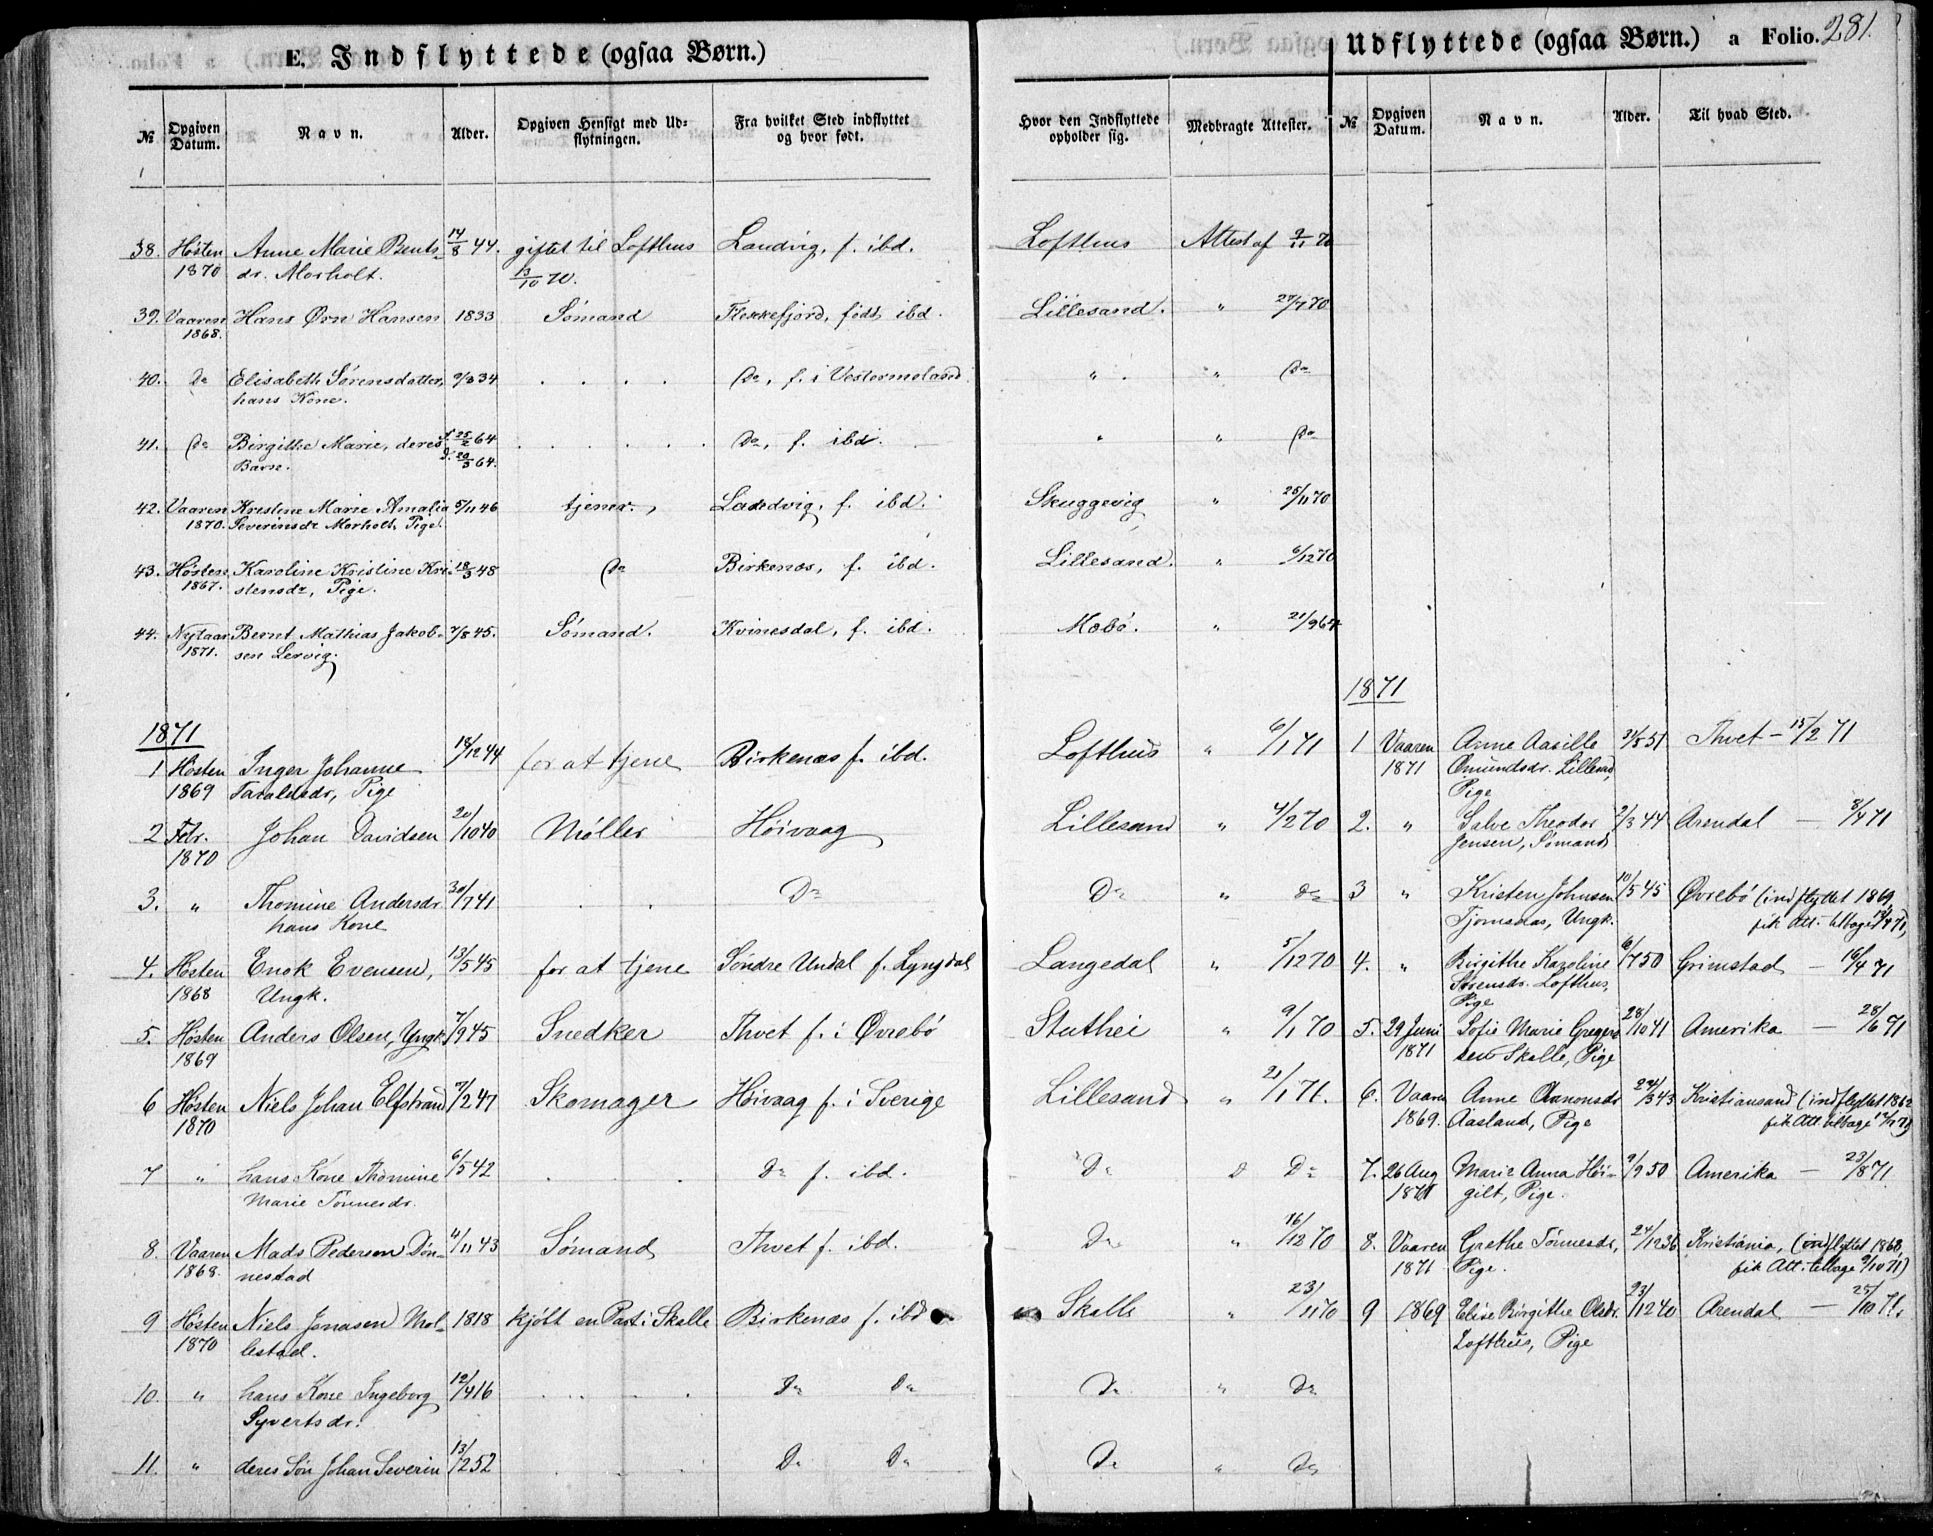 E. Indflyttede (ogsaa Børn.)
Udflyttede (ogsaa Børn.) a Folio. 281.
№ Opgiven Datum. Navn. Alder. Opgiven Hensigt med Udflytningen. Fra hvilket Sted indflyttet og hvor født. Hvor den Indflyttede opholder sig. Medbragte Attester. № Opgiven Datum. Navn. Alder. Til hvad Sted.
38. Høsten Anne Marie Bents- 14/8 44. giftet til Lofthus Landvig, f. ibd. Lofthus Attest af 9/11 70
1870 dr. Morholt. 13/10 70.
39. Vaaren Hans Ørn Hansen 1833 Sømand Flekkefjord, født ibd. Lillesand. " 27/7 70
1868.
40. Do Elisabeth Sørensdatter, 9/3 34 . . . . Do, f. i Vestermoland " " Do
hans Kone.
41. Do Birgithe Marie, deres f. 25/2 64 . . . . Do, f. ibd. " " Do
Barn. d. 20/3 64.
42. Vaaren Kristine Marie Amalia 5/11 46 tjener Landvig, f. ibd. Skuggevig " 25/11 70
1870. Severinsdr Morholt, Pige.
43. Høsten Karoline Kristine Kri- 18/3 48 Do Birkenæs, f. ibd. Lillesand. " 6/12 70
1867. stensdr, Pige.
44. Nytaar Bernt Mathias Jakob- 7/8 45. Sømand. Kvinesdal, f. ibd. Mæbø. " 21/9 67
1871. sen Lervig.
1871
1871
1 Høsten Inger Johanne 18/12 44 for at tjene Birkenæs f. ibd. Lofthus " 6/1 71 1 Vaaren Anne Aasille 31/5 51 Thvet — 15/2 71
1869 Taraldsdr, Pige 1871 Omundsdr. Lillesand,
Pige
2 Febr. Johan Davidsen 20/10 40 Møller Høivaag Lillesand " 4/2 70 2. " Salve Theodor 2/3 44 Arendal — 8/4 71
1870 Jensen, Sømand
3. " Thomine Andersdr 30/7 41 . . Do Do " do 3 " Kristen Johnsen 10/5 45 Øvrebø (indflyttet 1869,
hans Kone Tjomsaas, Ungk. fik Att. tilbage
4. Høsten Enok Evensen, 13/5 45 for at tjene Søndre Undal f. Lyngdal Langedal " 5/12 70 4. " Birgithe Karoline 6/7 50 Grimstad — 16/4 71
1868 Ungk. Sørensdr. Lofthus,
Pige
5. Høsten Anders Olsen, Yngk 7/9 45 Snedker Thvet f. i Øvrebø Stuthei " 9/1 70 5. 29 Juni Sofie Marie Gregers 28/10 41 Amerika — 28/6 71
1869 1871 sen Skalle, Pige
6 Høsten Niels Johan Elfstrand 7/2 47 Skomager Høivaag f. i Sverige Lillesand " 21/1 71. 6. Vaaren Anne Aanonsdr 24/3 43 Kristiansand (indflyttet 1862
1870 1869. Aasland, Pige fik Att. tilbage
7 " hans Kone Thomine 6/5 42 . . . Do f. ibd. Do " Do 7. 26 Aug Marie Anna Høi- 2/9 50 Amerika — 23/8 71
Marie Tønnesdr. 1871 gilt, Pige.
8. Vaaren Mads Pedersen Døn- 4/11 43 Sømand Thvet f. ibd. Do " 16/12 70 8. Vaaren Grethe Tønnesdr, 24/12 36 Kristiania, (indflyttet 1868,
1868. nestad 1871 Pige. fik Att. tilbage 9/10 71)
9 Høsten Niels Jonasen Mol- 1818 kjøbt en Part i Skalle Birkenæs f. ibd Skalle " 23/11 70 9 1869 Elise Birgithe Olsdr. 23/12 40 Arendal — 25/10 71.
1870 lestad. Lofthus, Pige
10. " hans Kone Ingeborg 12/4 16 . . . Do Do Do " Do
Syvertsdr.
11. " deres Søn Johan Severin 13/2 52 . . . Do Do Do " Do